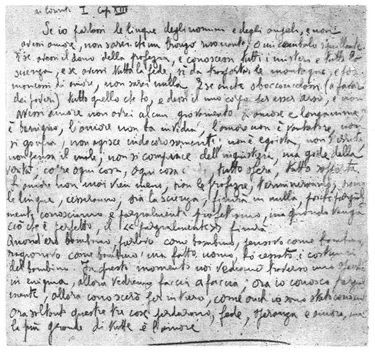 ai corinti I Cap XIII
Se io parlassi le lingue degli uomini e degli angeli, e non
avessi amore, non sarei che un bronzo risonante, o un cembalo squillante
E se avessi il dono della profezia, e conoscessi tutti i misteri e tutta la
scienza, e se avessi tutta la fede, sì da trasportare le montagne, e fossi
mancante di amore, non sarei nulla. E se anche sbocconcellassi a favore
dei poveri, tutto quello che ho, e dessi il mio corpo per esser arso, e non
avessi amore non avrei alcun giovamento. L'amore è longanime,
è benigno, l'amore non ha invidia, l'amore non è vantatore, non
si gonfia, non agisce indecorosamente, non è egoista, non s'irrita
non pensa il male, non si compiace dell'ingiustizia, ma gode della
verità, copre ogni cosa, ogni cosa tutto spera, tutto sopporta
L'amore non mai vien meno, pon le profezie, termineranno, pone
le lingue, cesseranno, sia la scienza, finirà in nulla, poiché
mente conosciamo e profetiamo, ma quando venga
ciò che è perfetto, il finirà
Quando ero bambino, parlavo come bambino, pensavo come bambino,
ragionavo come bambino; ma fatto uomo, ho cessato i costumi
del bambino. In questo momento noi vediamo traverso uno specchio
in enigma, allora vedremo faccia a faccia, ora io conosco
mente, allora conoscerò per intero, come anch'io sono stato conosciuto
Ora soltanto queste tre cose perdurano, fede, speranza e amore, ma
la più grande di tutte è l'amore